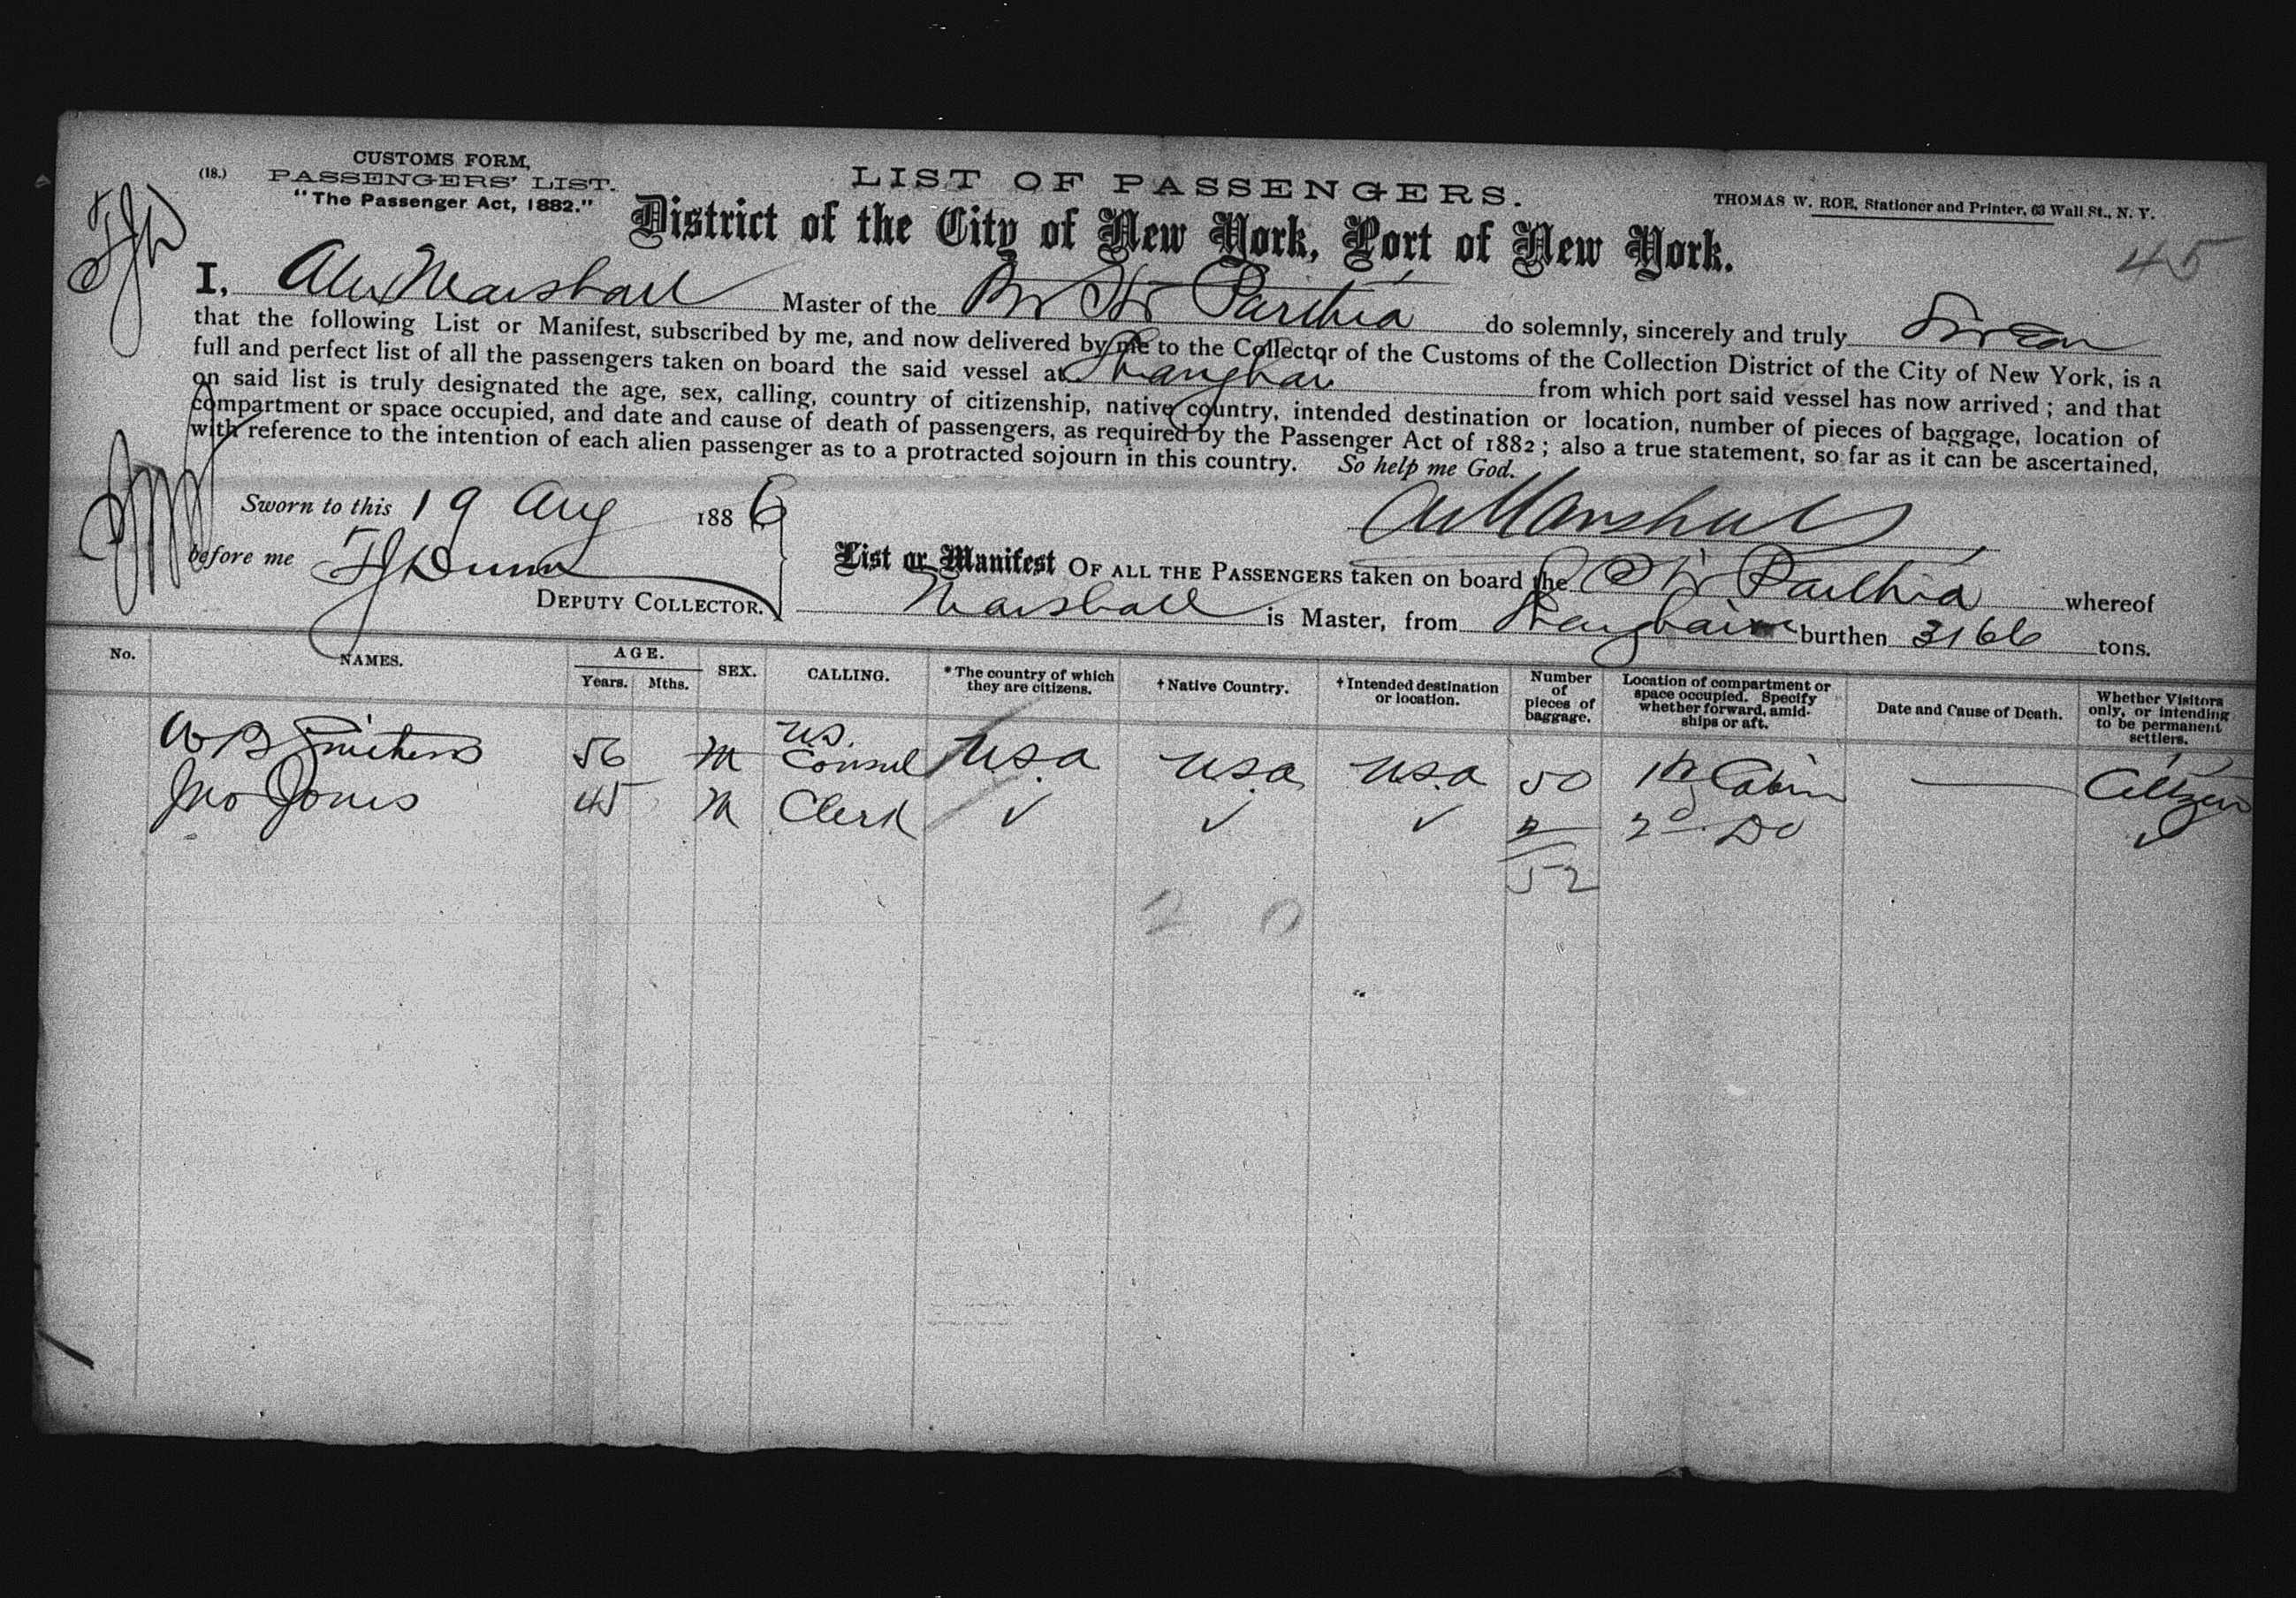 (18.)
CUSTOMS FORM,
PASSENGERS' LIST.
"The Passenger Act, 1882."
LIST OF PASSENGERS.
THOMAS W. ROE, Stationer and Printer, 63 Wall St., N. Y.
District of the City of New York, Port of New York.
45
I, Alex Marshall Master of the Br Str Parthia do solemnly, sincerely and truly Swear
that the following List or Manifest, subscribed by me, and now delivered by me to the Collector of the Customs of the Collection District of the City of New York, is a
full and perfect list of all the passengers taken on board the said vessel at Shanghai from which port said vessel has now arrived; and that
on said list is truly designated the age, sex, calling, country of citizenship, native country, intended destination or location, number of pieces of baggage, location of
compartment or space occupied, and date and cause of death of passengers, as required by the Passenger Act of 1882; also a true statement, so far as it can be ascertained,
with reference to the intention of each alien passenger as to a protracted sojourn in this country. So help me God.
Sworn to this 19 Aug 1886
A Marshall
before me FJ Dunn
DEPUTY COLLECTOR.
List or Manifest OF ALL THE PASSENGERS taken on board the Str Parthia whereof
Marshall is Master, from Shanghai burthen 3166 tons.
No. NAMES. AGE. Years. Mths. SEX. CALLING. *The country of which they are citizens. †Native Country. †Intended destination or location. Number of pieces of baggage. Location of compartment or space occupied. Specify whether forward, amidships or aft. Date and Cause of Death. Whether Visitors only, or intending to be permanent settlers.
W B Smithers 56 M US. Consul USA USA USA 50 1st Cabin — Citizen
Jno Jones 45 M Clerk ✓ ✓ ✓ 2 2d Do ✓
52
2 0